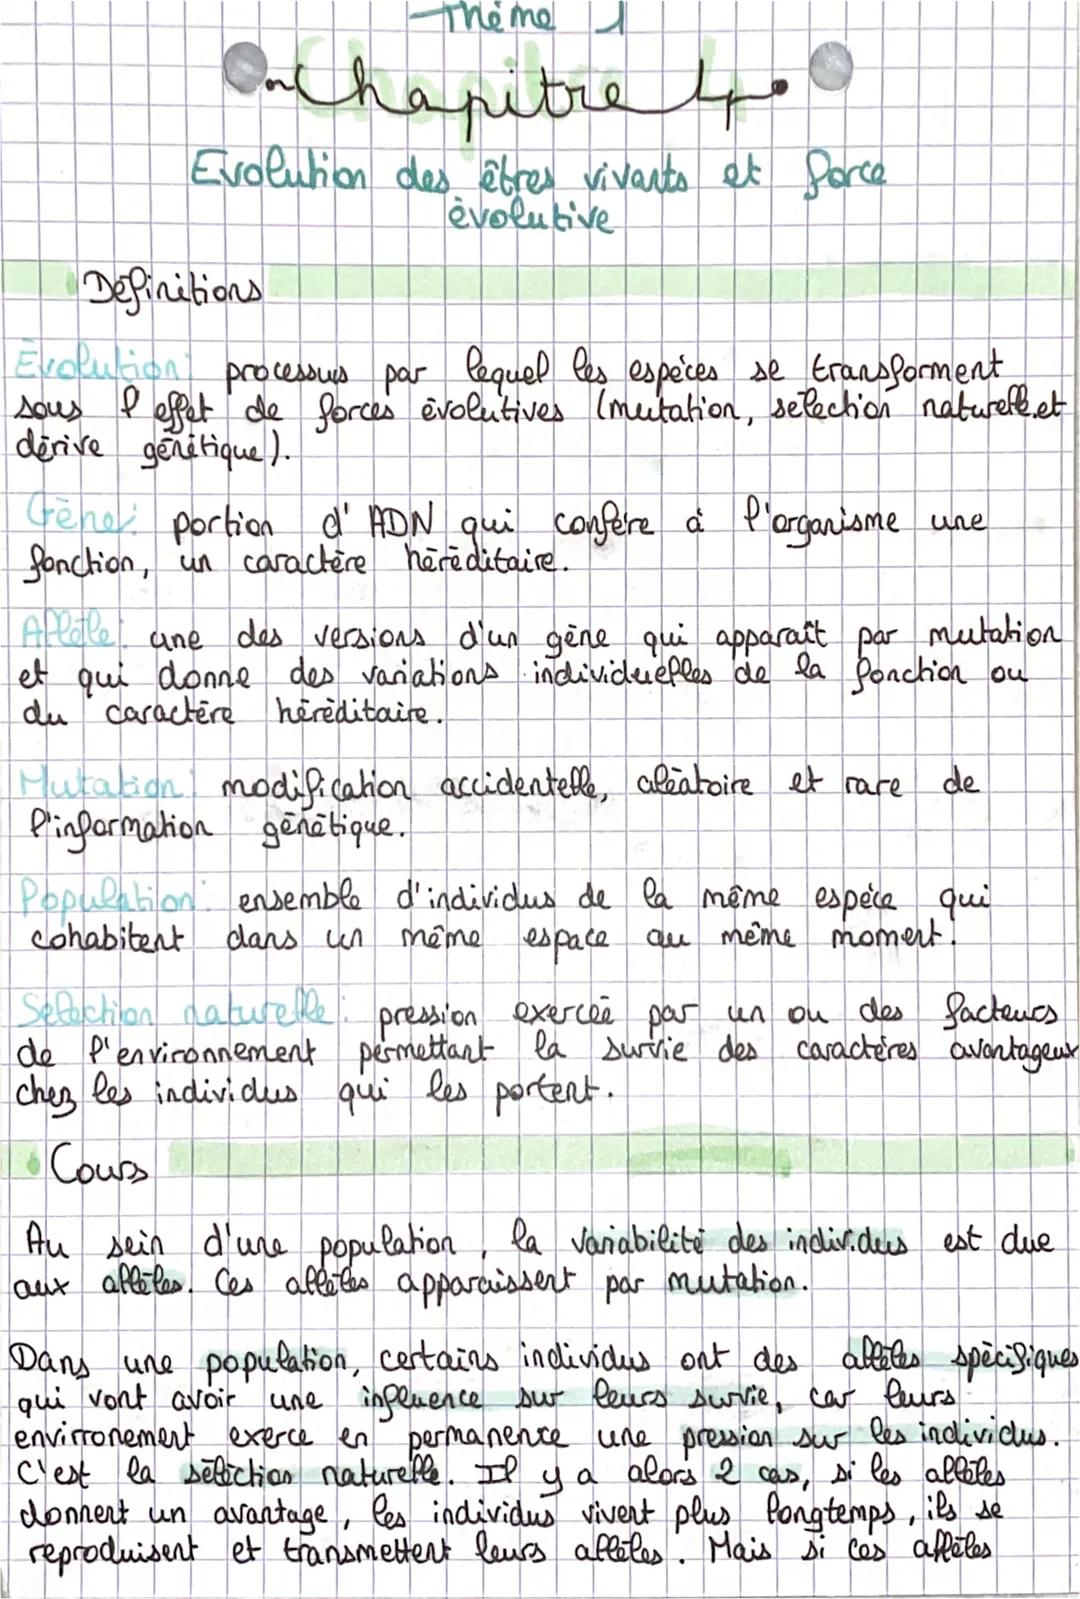 Thème 1
Chapitre 4
Evolution des êtres vivants et force
évolutive
Définitions
Évolution: processus par lequel les espèces se transforment
sous l'effet de forces évolutives (mutation, sélection naturelle et
dérive génétique).
Gène: portion d'ADN qui confère à l'organisme une
fonction, un caractère héréditaire.
Allèle: une des versions d'un gène qui apparaît par mutation
et qui donne des variations individuelles de la fonction ou
du caractère héréditaire.
Mutation: modification accidentelle, aléatoire et rare de
l'information génétique.
Population: ensemble d'individus de la même espèce qui
cohabitent dans un même espace au même moment.
Sélection naturelle: pression exercée par un ou des facteurs
de l'environnement permettant la survie des caractères avantageux
chez les individus qui les portent.
Cours
Au sein d'une population, la variabilité des individus est due
aux allèles. Ces allèles apparaissent par mutation.
Dans une population, certains individus ont des allèles spécifiques
qui vont avoir une influence sur leurs survie, car leurs
envirronement exerce en permanence une pression sur les individus.
C'est la séléction naturelle. Il y a alors 2 cas, si les allèles
donnent un avantage, les individus vivent plus longtemps, ils se
reproduisent et transmettent leurs allèles. Mais si ces allèles